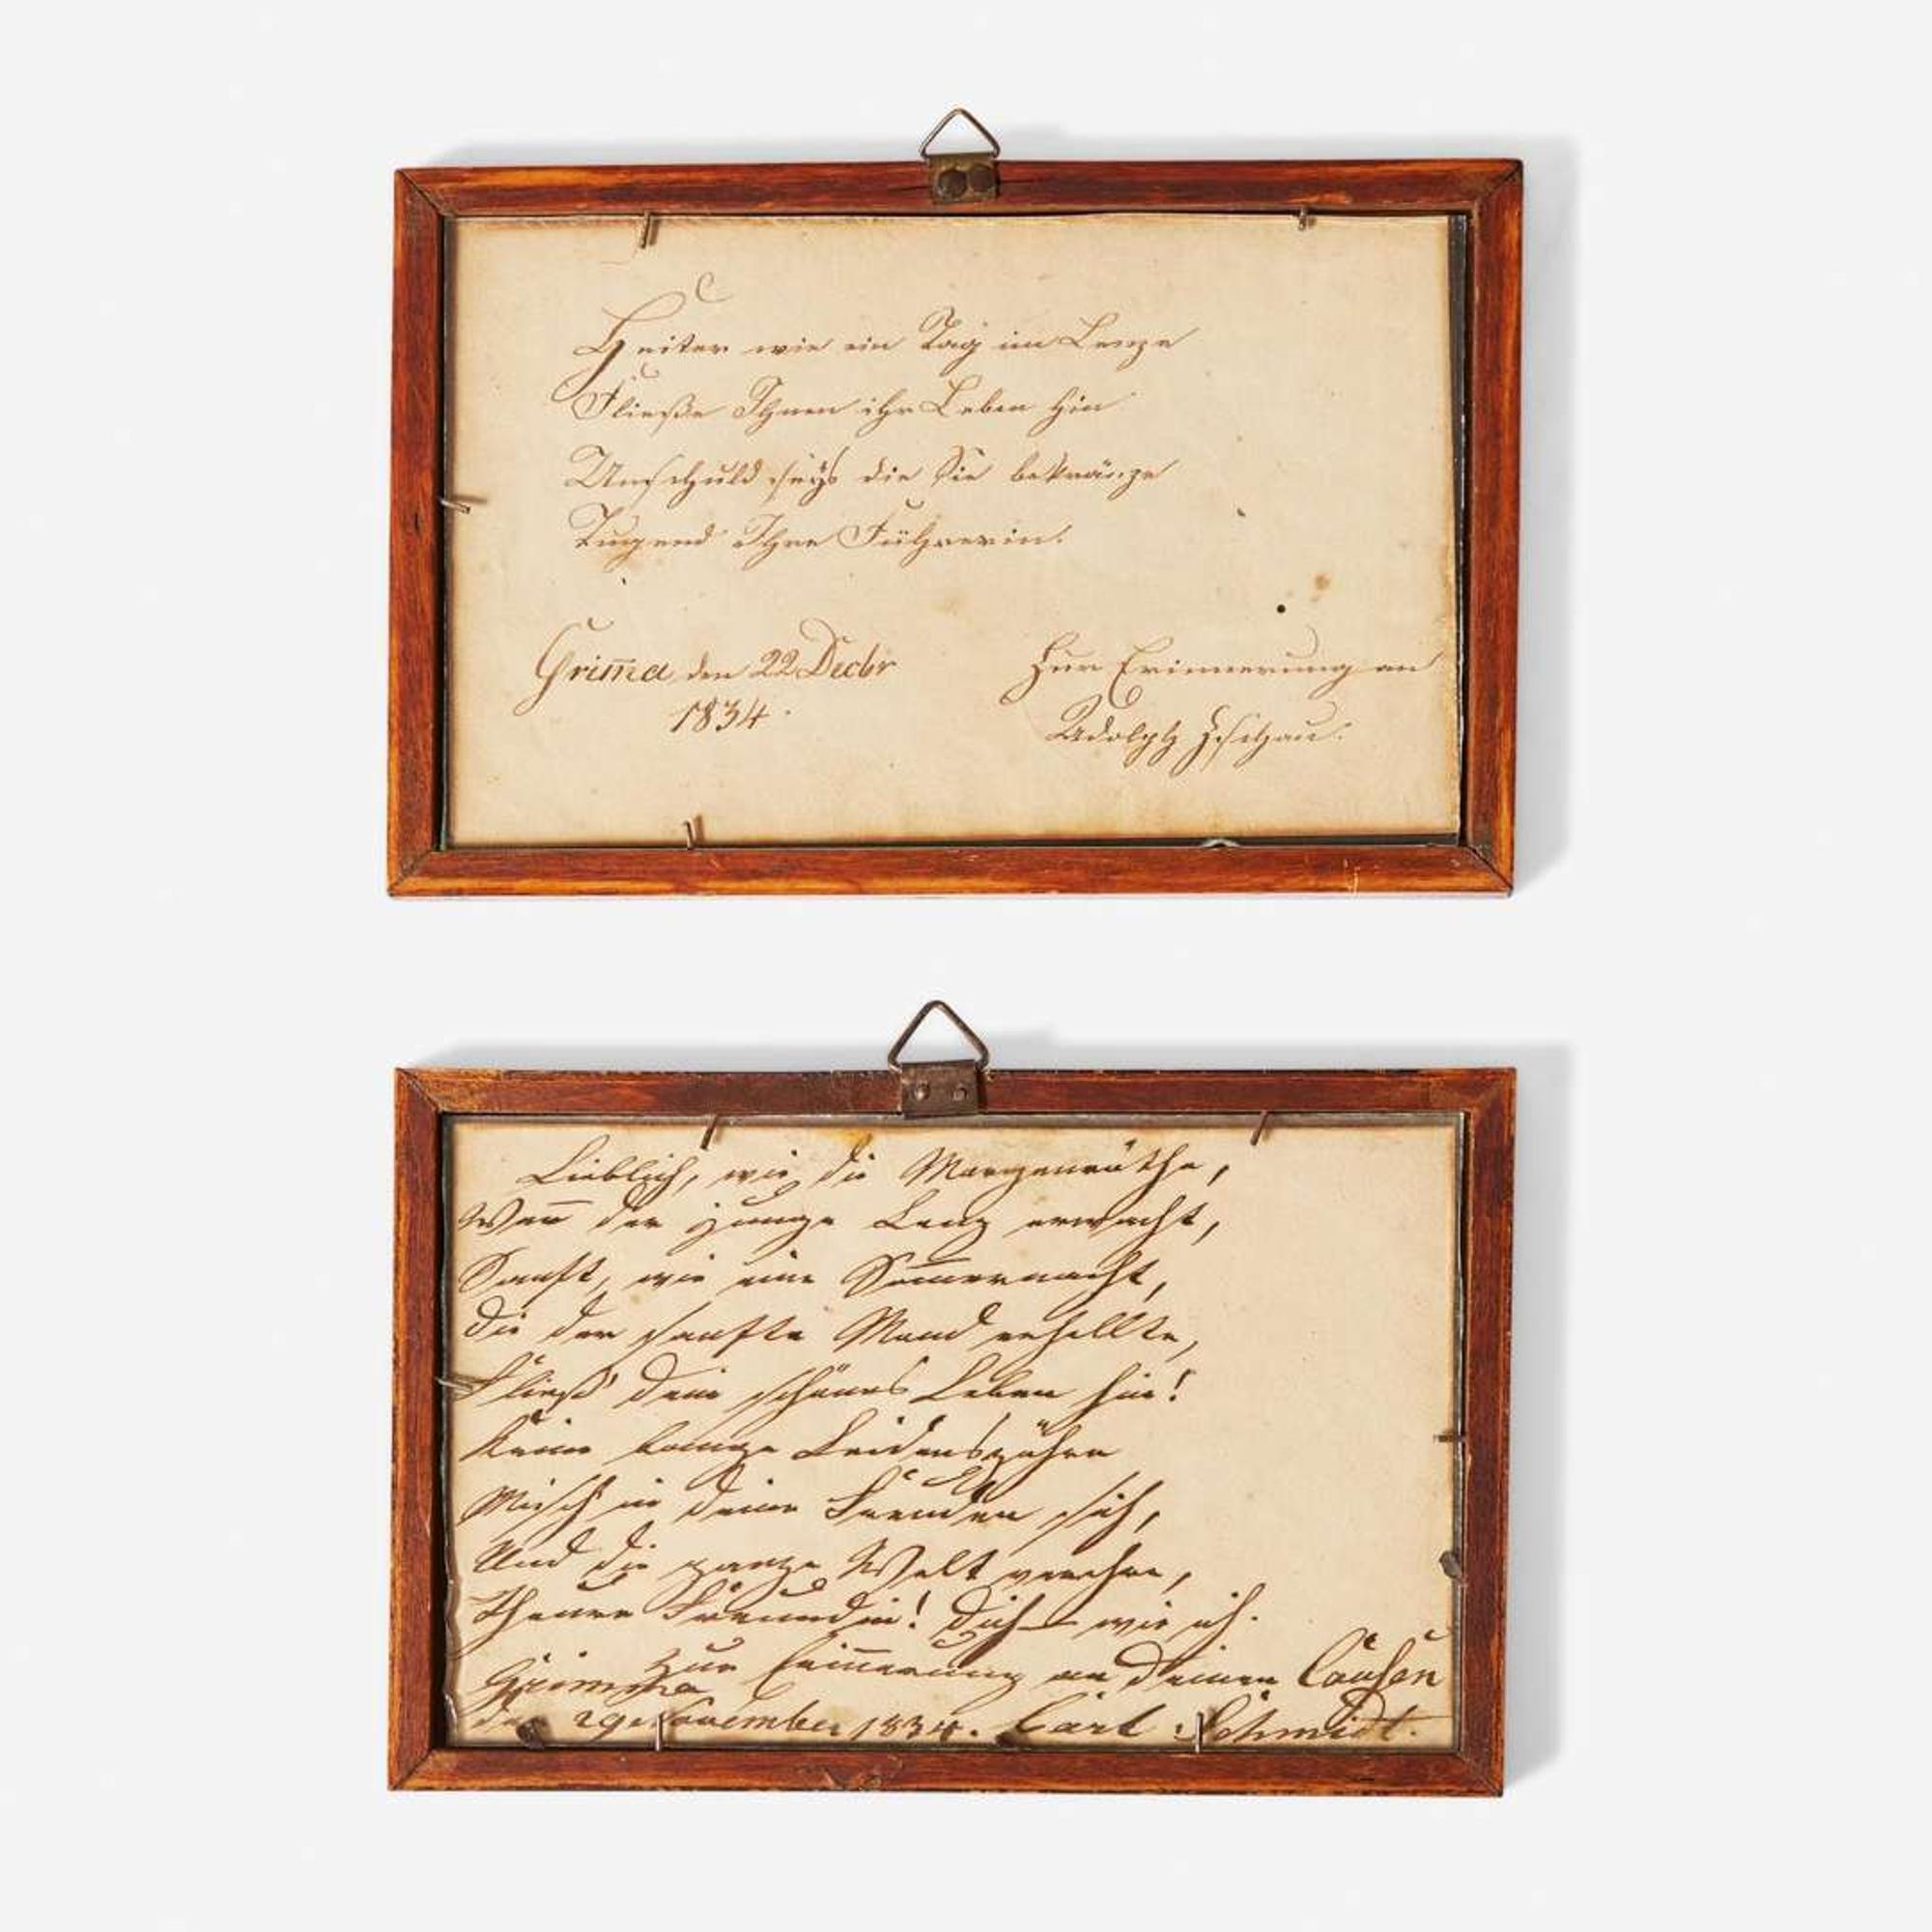 Heiter wie ein Tag im Lenze
Fließe Ihnen ihr Leben hin
Unschuld seys die Sie bekränze
Tugend Ihre Führerin.
Grim̅a den 22 Decbr
1834.
Zur Erinnerung an
Adolph
Lieblich, wie die Morgenröthe,
Wen̅ der junge Lenz erwacht,
Sanft, wie eine Som̅ernacht,
Die der sanfte Mond erhellte,
Fließ' dein schönes Leben hin!
Keine bange Leidenszähre
Misch' in deine Freuden sich,
Und die ganze Welt verehre,
Theure Freundin! Dich – wie ich.
Zur Erin̅erung an Deinen Cousen
Grimma
den 29 November 1834. Carl Schmidt.